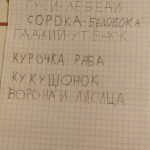 ГУСИ-ЛЕБЕДИ
СОРОКА-БЕЛОБОКА
ГАДКИЙ УТЁНОК
КУРОЧКА РЯБА
КУКУШОНОК
ВОРОНА И ЛИСИЦА